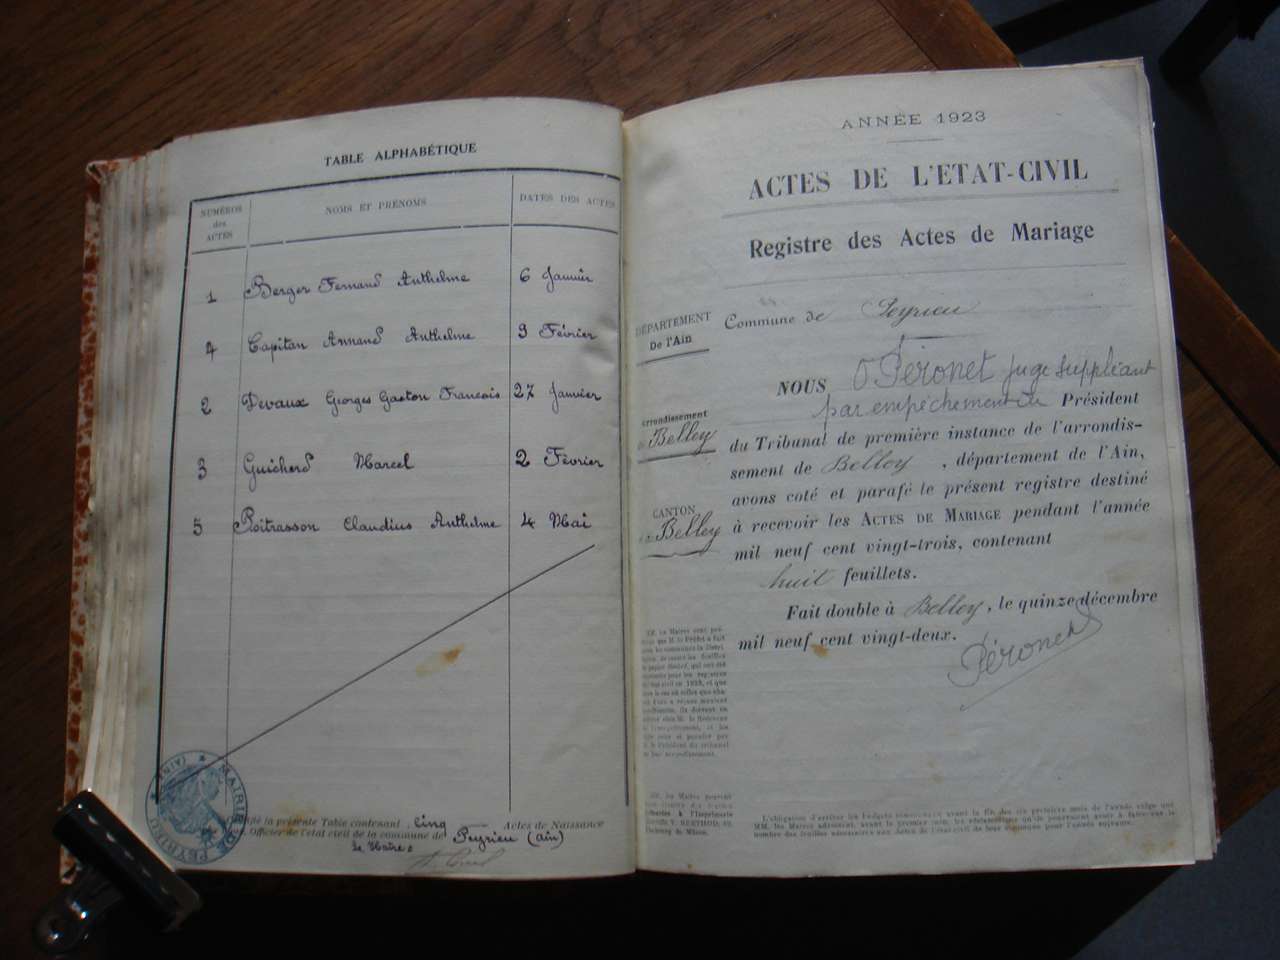 TABLE ALPHABÉTIQUE
NUMÉROS des ACTES
NOMS ET PRÉNOMS
DATES DES ACTES
1 Berger Fernand Anthelme 6 Janvier
4 Capitan Armand Anthelme 3 Février
2 Devaux Georges Gaston François 27 Janvier
3 Guicherd Marcel 2 Février
5 Roitrasson Claudius Anthelme 4 Mai
la présente Table contenant cinq Actes de Naissance
Officier de l'état civil de la commune de Peyrieu (Ain)
le Maire
MAIRIE DE PEYRIEU (AIN)
ANNÉE 1923
ACTES DE L'ETAT-CIVIL
Registre des Actes de Mariage
DÉPARTEMENT
De l'Ain
Commune de Peyrieu
Arrondissement
de Belley
CANTON
de Belley
NOUS Péronet juge suppléant
par empêchement du Président
du Tribunal de première instance de l'arrondis-
sement de Belley, département de l'Ain,
avons coté et parafé le présent registre destiné
à recevoir les ACTES DE MARIAGE pendant l'année
mil neuf cent vingt-trois, contenant
huit feuillets.
Fait double à Belley, le quinze décembre
mil neuf cent vingt-deux.
Péronet